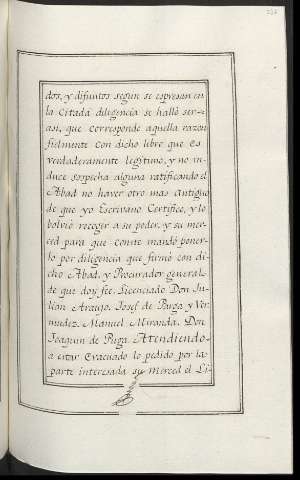 dos, y difuntos segun se expresan en
la Citada diligencia se halló ser
asi, que corresponde aquella razon
fielmente con dicho libro que es
verdaderamente legitimo, y no in-
duce sospecha alguna ratificando el
Abad no haver otro mas antiguo
de que yo Escrivano Certifico, y lo
bolvió recoger a su poder, y su mer-
ced para que conste mandó poner-
lo por diligencia que firmó con di-
cho Abad, y Procurador general
de que doy fee. Licenciado Don Ju-
lian Araujo. Josef de Puga y Ver-
mudez. Manuel Miranda. Don
Joaquin de Puga. Atendiendo
a estar Evacuado lo pedido por la
parte interesada su Merced el Li-